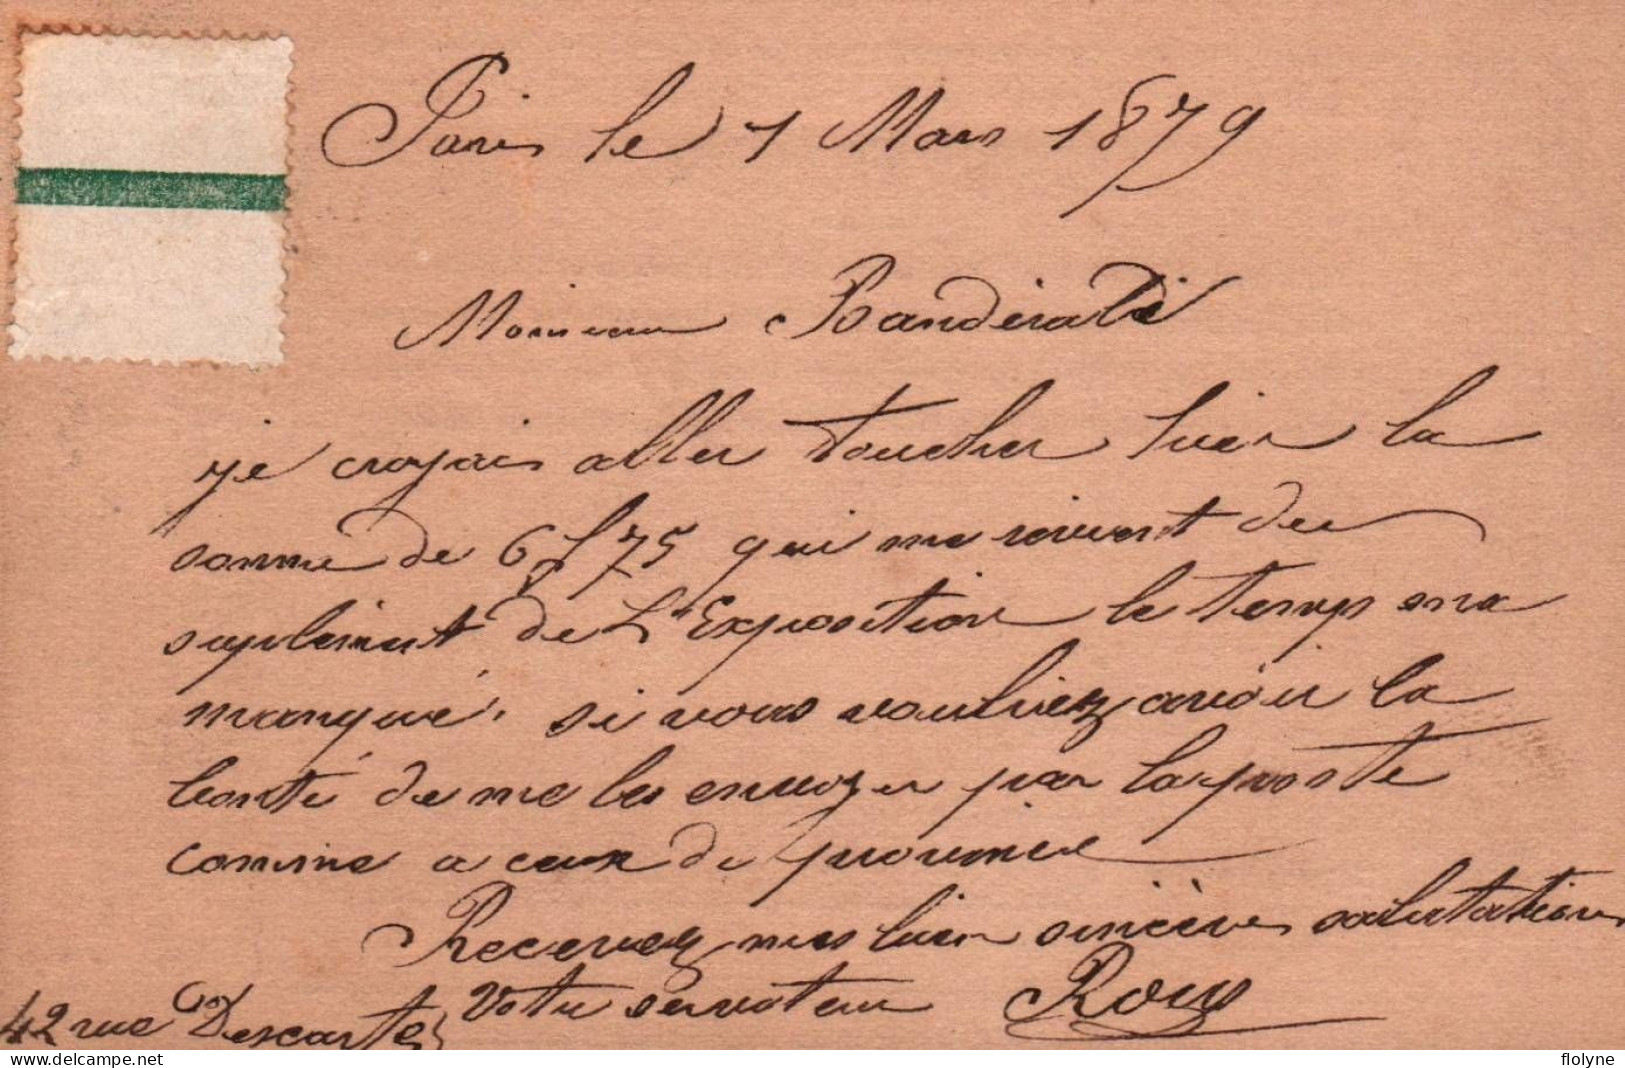 Paris le 1 Mars 1879
Monsieur Bandérali
je croyais aller toucher hier la
somme de 6f75 qui me revient du
suplement de L'Exposition le temps ma
manqué. si vous vouliez avoir la
bonté de me les envoyer par la poste
comme a ceux de province
Recevez mes bien sincères salutations
Votre serviteur Roux
42 rue Descartes
www.delcampe.net
flolyne